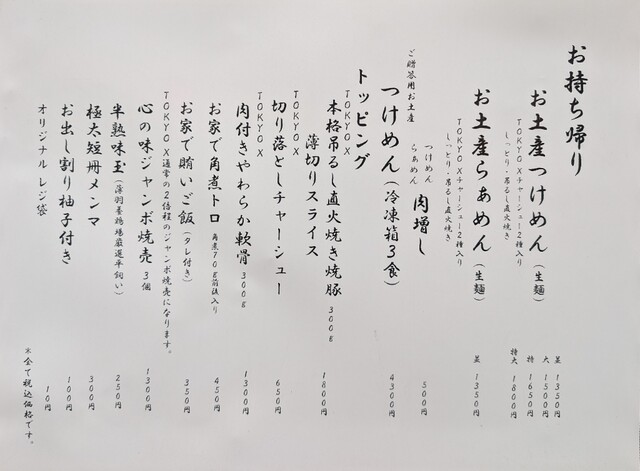 お持ち帰り
お土産つけめん（生麺）
並 1350円
大 1500円
特 1650円
特大 1800円
TOKYO Xチャーシュー2種入り
しっとり・吊るし直火焼き
お土産らぁめん（生麺）
並 1350円
TOKYO Xチャーシュー2種入り
しっとり・吊るし直火焼き
つけめん
らぁめん
肉増し
500円
ご贈答用お土産
つけめん（冷凍箱3食）
4300円
トッピング
TOKYO X
本格吊るし直火焼き焼豚 300g
薄切りスライス
1800円
TOKYO X
切り落としチャーシュー
650円
TOKYO X
肉付きやわらか軟骨 300g
1300円
お家で角煮トロ 角煮70g前後入り
450円
お家で賄いご飯（タレ付き）
350円
TOKYO X通常の2倍程のジャンボ焼売になります。
心の味ジャンボ焼売 3個
1300円
半熟味玉（薄羽養鶏場厳選平飼い）
250円
極太短冊メンマ
300円
お出し割り柚子付き
100円
オリジナルレジ袋
10円
※全て税込価格です。